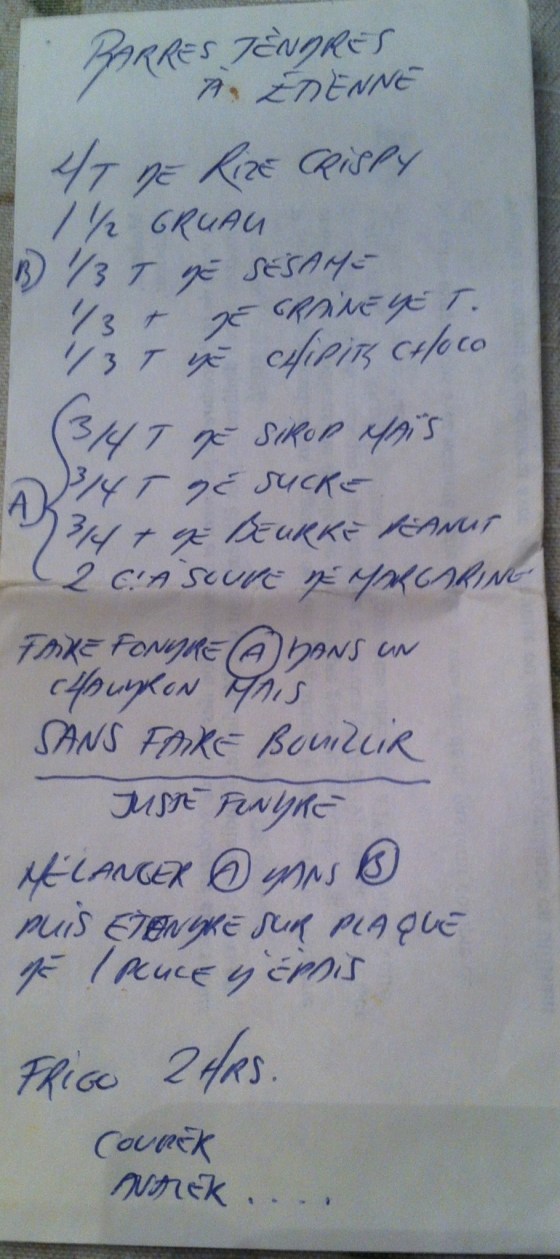 BARRES TENDRES
À ÉTIENNE
4 T DE RIZE CRISPY
1 1/2 GRUAU
B) 1/3 T DE SÉSAME
1/3 T DE GRAINE DE T.
1/3 T DE CHIPITS CHOCO
3/4 T DE SIROP MAÏS
3/4 T DE SUCRE
A) 3/4 T DE BEURRE PEANUT
2 C. À SOUPE DE MARGARINE
FAIRE FONDRE A DANS UN
CHAUDRON MAIS
SANS FAIRE BOUILLIR
JUSTE FONDRE
MÉLANGER A DANS B
PUIS ÉTENDRE SUR PLAQUE
DE 1 POUCE D'ÉPAIS
FRIGO 2 HRS.
COUPER
AVALER . . . .